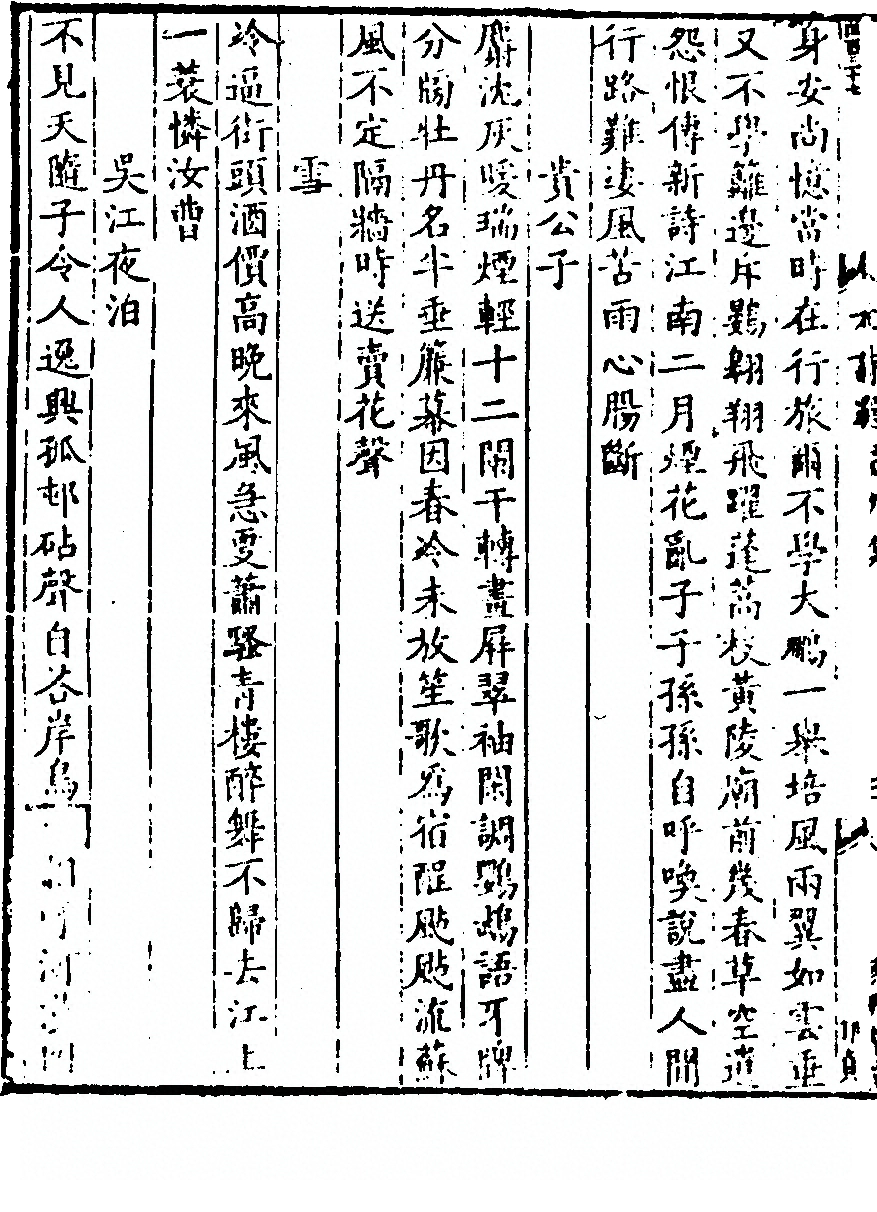 身安尚憶當時在行旅爾不學大鵬一舉培風雨翼如雲垂
又不學籬邊斥鷃翱翔飛躍蓬蒿枝黃陵廟前幾春草空遺
怨恨傳新詩江南二月煙花亂子子孫孫自呼喚說盡人間
行路難淒風苦雨心腸斷
貴公子
麝沈灰暖瑞煙輕十二闌干轉畫屏翠袖閑調鸚鵡語牙牌
分牓牡丹名半垂簾幕因春冷未放笙歌爲宿酲颭颭流蘇
風不定隔牆時送賣花聲
雪
冷逼街頭酒價高晚來風急更蕭騷青樓醉舞不歸去江上
一蓑憐汝曹
吳江夜泊
不見天隨子令人逸興孤邨砧聲自苦岸烏